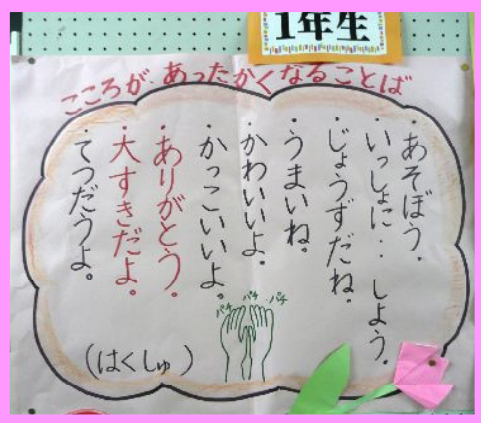 1年生
こころが、あったかくなることば
・あそぼう。
・いっしょに‥しよう。
・じょうずだね。
・うまいね。
・かわいいよ。
・かっこいいよ。
・ありがとう。
・大すきだよ。
・てつだうよ。
パチ パチ パチ
(はくしゅ)